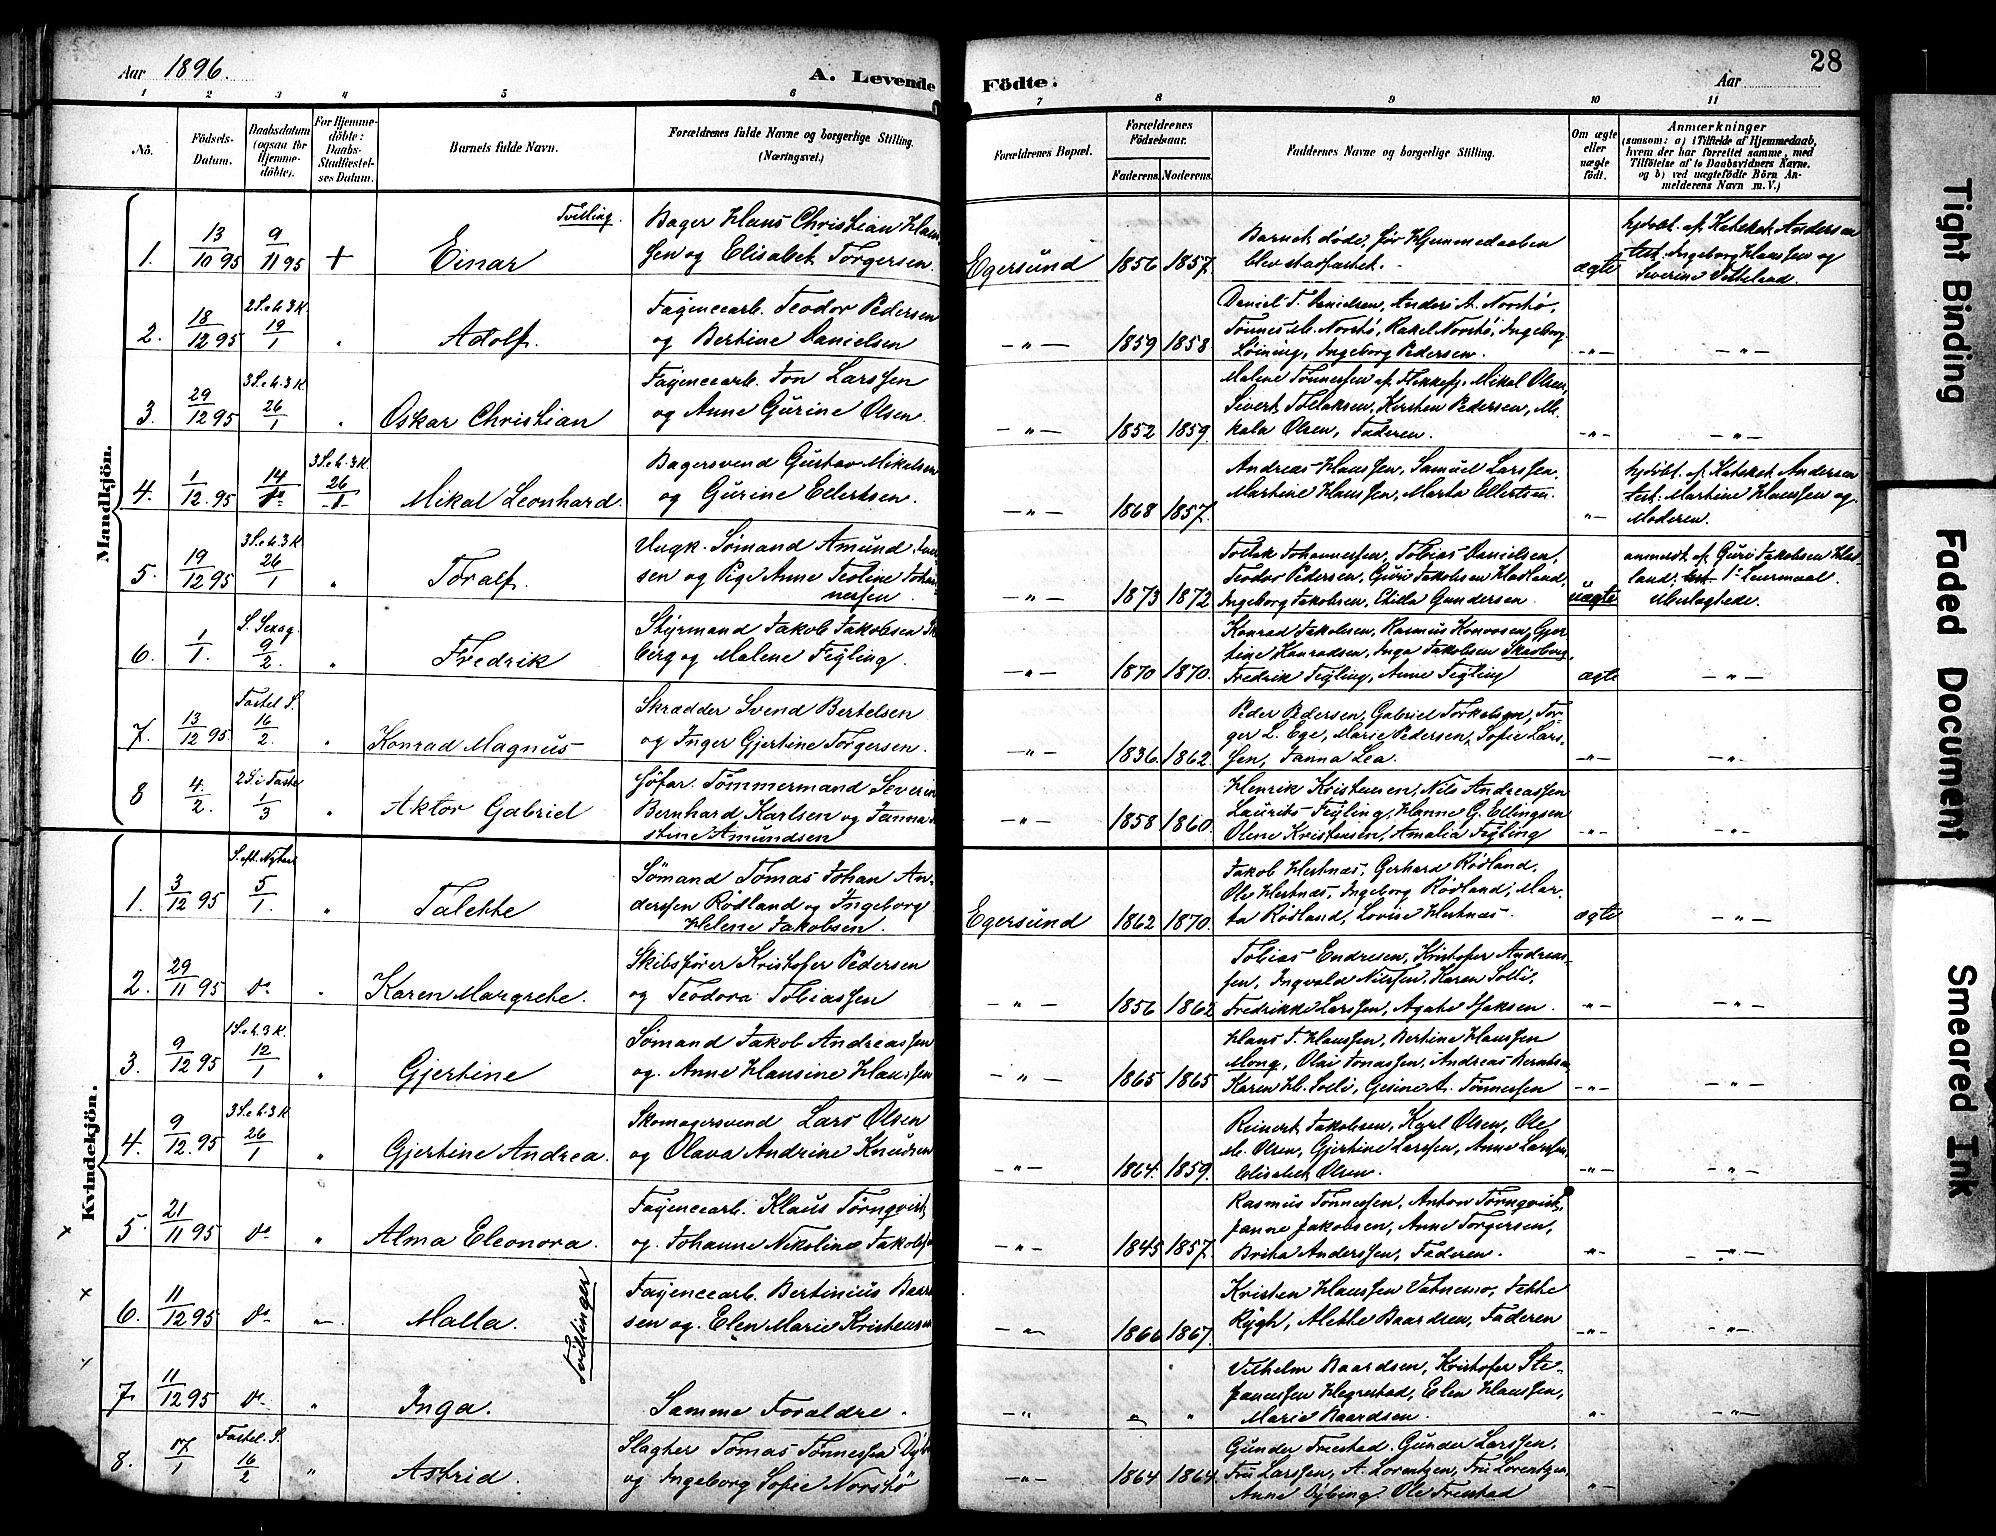 Aar 1896.
A. Levende Födte.
Aar
28
1 2 3 4 5 6 7 8 9 10 11
Nö.
Födsels-Datum.
Daabsdatum (ogsaa for Hjemmedöbte).
For Hjemmedöbte: Daabs-Stadfæstelses Datum.
Barnets fulde Navn.
Forældrenes fulde Navne og borgerlige Stilling. (Næringsvei.)
Forældrenes Bopæl.
Forældrenes Födselsaar.
Faderens. Moderens.
Faddernes Navne og borgerlige Stilling.
Om ægte eller uægte födt.
Anmærkninger
(saasom: a) i Tilfælde af Hjemmedaab,
hvem der har forrettet samme, med
Tilföielse af to Daabsvidners Navne,
og b) ved uægtefödte Börn Anmelderens Navn m. V.)
Mandkjön.
1. 13/10 95 9/11 95 + Einar Tvilling.
Bager Hans Christian Hansen og Elisabet Torgersen.
Egersund 1856 1857.
Barnet døde, før Hjemmedaaben
blev stadfæstet.
ægte
hjdøbt. af Kateket Andersen
test. Ingeborg Hanssen og
Severine
2. 18/12 95 2 S. e. h. 3 K. 19/1 " Adolf.
Fayencearb. Teodor Pedersen
og Bertine Danielsen
— " — 1859 1858
Daniel T. Danielsen, Anders A. Norstø,
Tønnes M. Norstø, Rakel Norstø, Ingeborg
Løining, Ingeborg Pedersen.
— " — — " —
3. 29/12 95 3 S. e. h. 3 K. 26/1 " Oskar Christian
Fayencearb. Jon Larssen
og Anne Gurine Olsen.
— " — 1852 1859
Malene Tønnessen af Flekkefj. Mikal Olsen,
Sivert Tollaksen, Kirsten Pedersen, Mikala Olsen, Faderen.
— " — — " —
4. 1/12 95 14/ do 3 S. e. h. 3 K. 26/1 Mikal Leonhard.
Bagersvend Gustav Mikelsen
og Gurine Ellertsen.
— " — 1868 1857.
Andreas Hanssen, Samuel Larssen,
Martine Hanssen, Marta Ellertsen.
— " —
hjdøbt. af Kateket Andersen
test: Martine Hanssen og
Moderen.
5. 19/12 95 3 S. e. h. 3 K 26/1 " Toralf.
Ungk. Sømand Amund
sen og Pige Anne Teoline Johannessen.
— " — 1873 1872
Tollak Johannessen, Tobias Danielsen,
Teodor Pedersen, Guri Jakobsen Hadland,
Ingeborg Jakobsen, Gundersen
uægte
anmeldt af Guri Jakobsen Hadland; 1ste Leiermaal.
Ubeslægtede.
6. 1/1. S. Sexag. 9/2. " Fredrik
Styrmand Jakob Jakobsen
berg og Malene Feyling.
— " — 1870 1870.
Konrad Jakobsen, Rasmus Gjertine Konradsen, Inga Jakobsen Skadberg,
Fredrik Feyling, Anne Feyling
ægte — " —
7. 13/12 95 Fastel. S. 16/2. " Konrad Magnus
Skrædder Svend Bertelsen
og Inger Gjertine Torgersen.
— " — 1836. 1862.
Peder Pedersen, Gabriel Torkelsen, Torger L. Ege, Marie Pedersen, Sofie Larssen, Janna Lea.
— " — — " —
8 4/2. 2 S. i Faste 1/3 " Aktor Gabriel
Søfar. Tømmermand Severin
Bernhard Karlsen og Janna
stine Amundsen
— " — 1858 1860.
Henrik Kristensen, Nils Andreassen
Laurits Feyling, Hanne G. Ellingsen
Olene Kristensen, Amalia Feyling
— " — — " —
Kvindekjön.
1. 3/12 95 S. eft. Nytaar 5/1. " Talette
Sømand Tomas Johan Anderssen Rødland og Ingeborg
Helene Jakobsen.
Egersund 1862 1870.
Jakob Hestnæs, Gerhard Rødland,
Ole Hestnæs, Ingeborg Rødland, Marta Rødland, Lovise Hestnæs.
ægte — " —
2. 29/11 95 do " Karen Margrete.
Skibsfører Kristofer Pedersen
og Teodora Tobiassen
— " — 1856 1862
Tobias Endresen, Kristofer Andreassen, Ingvald Nilssen, Karen Solli,
Fredrikke Larssen, Agate Isaksen.
— " — — " —
3. 9/12 95 1 S. e. h. 3 K. 12/1 " Gjertine
Sømand Jakob Andreassen
og. Anne Hansine Hanssen
— " — 1865 1865
Hans T. Hanssen, Bertine Hanssen
Mong, Olai Jonassen, Andreas Berntsen
Karen H. Soli, Gesine A. Tønnessen
— " — — " —
4. 9/12. 95 3 S. e. h. 3 K. 26/1 " Gjertine Andrea.
Skomagersvend Lars Olsen
og Olava Andrine Knudsen
— " — 1864. 1859.
Reinert Jakobsen, Karl Olsen, Ole
M. Olsen, Gjertine Larssen, Anne Larssen,
Elisabet Olsen.
— " — — " —
x 5. 21/11 95 do " Alma Eleonora.
Fayencearb. Klaus Tørnqvist,
og. Johanne Nikoline Jakobsen
— " — 1845 1857.
Rasmus Tønnessen, Anton Tørnqvist,
Janne Jakobsen, Anne Torgersen,
Brita Anderssen, Faderen.
— " — — " —
x 6. 11/12 95 do " Malla. Tvillinger
Fayencearb. Bertinius Baardsen og. Elen Marie Kristensen
— " — 1866 1867.
Kristen Hanssen Vatnemo, Tette
Rygh, Alette Baardsen, Faderen
— " — — " —
7. 11/12 95 do " Inga.
Samme Forældre.
— " — " "
Vilhelm Baardsen, Kristofer Stefanussen Hegrestad, Elen Hanssen,
Marie Baardsen.
" — " —
8. 17/1 Fastel. S. 16/2 " Astrid.
Slagter Tomas Tønnessen
og Ingeborg Sofie Norstø
— " — 1864 1864
Gunder Friestad. Gunder Larssen.
Fru Larssen, A. Lorentzen, Fru Lorentzen,
Anne Dybing. Ole Friestad
" "
Tight Binding
Faded Document
Smeared Ink